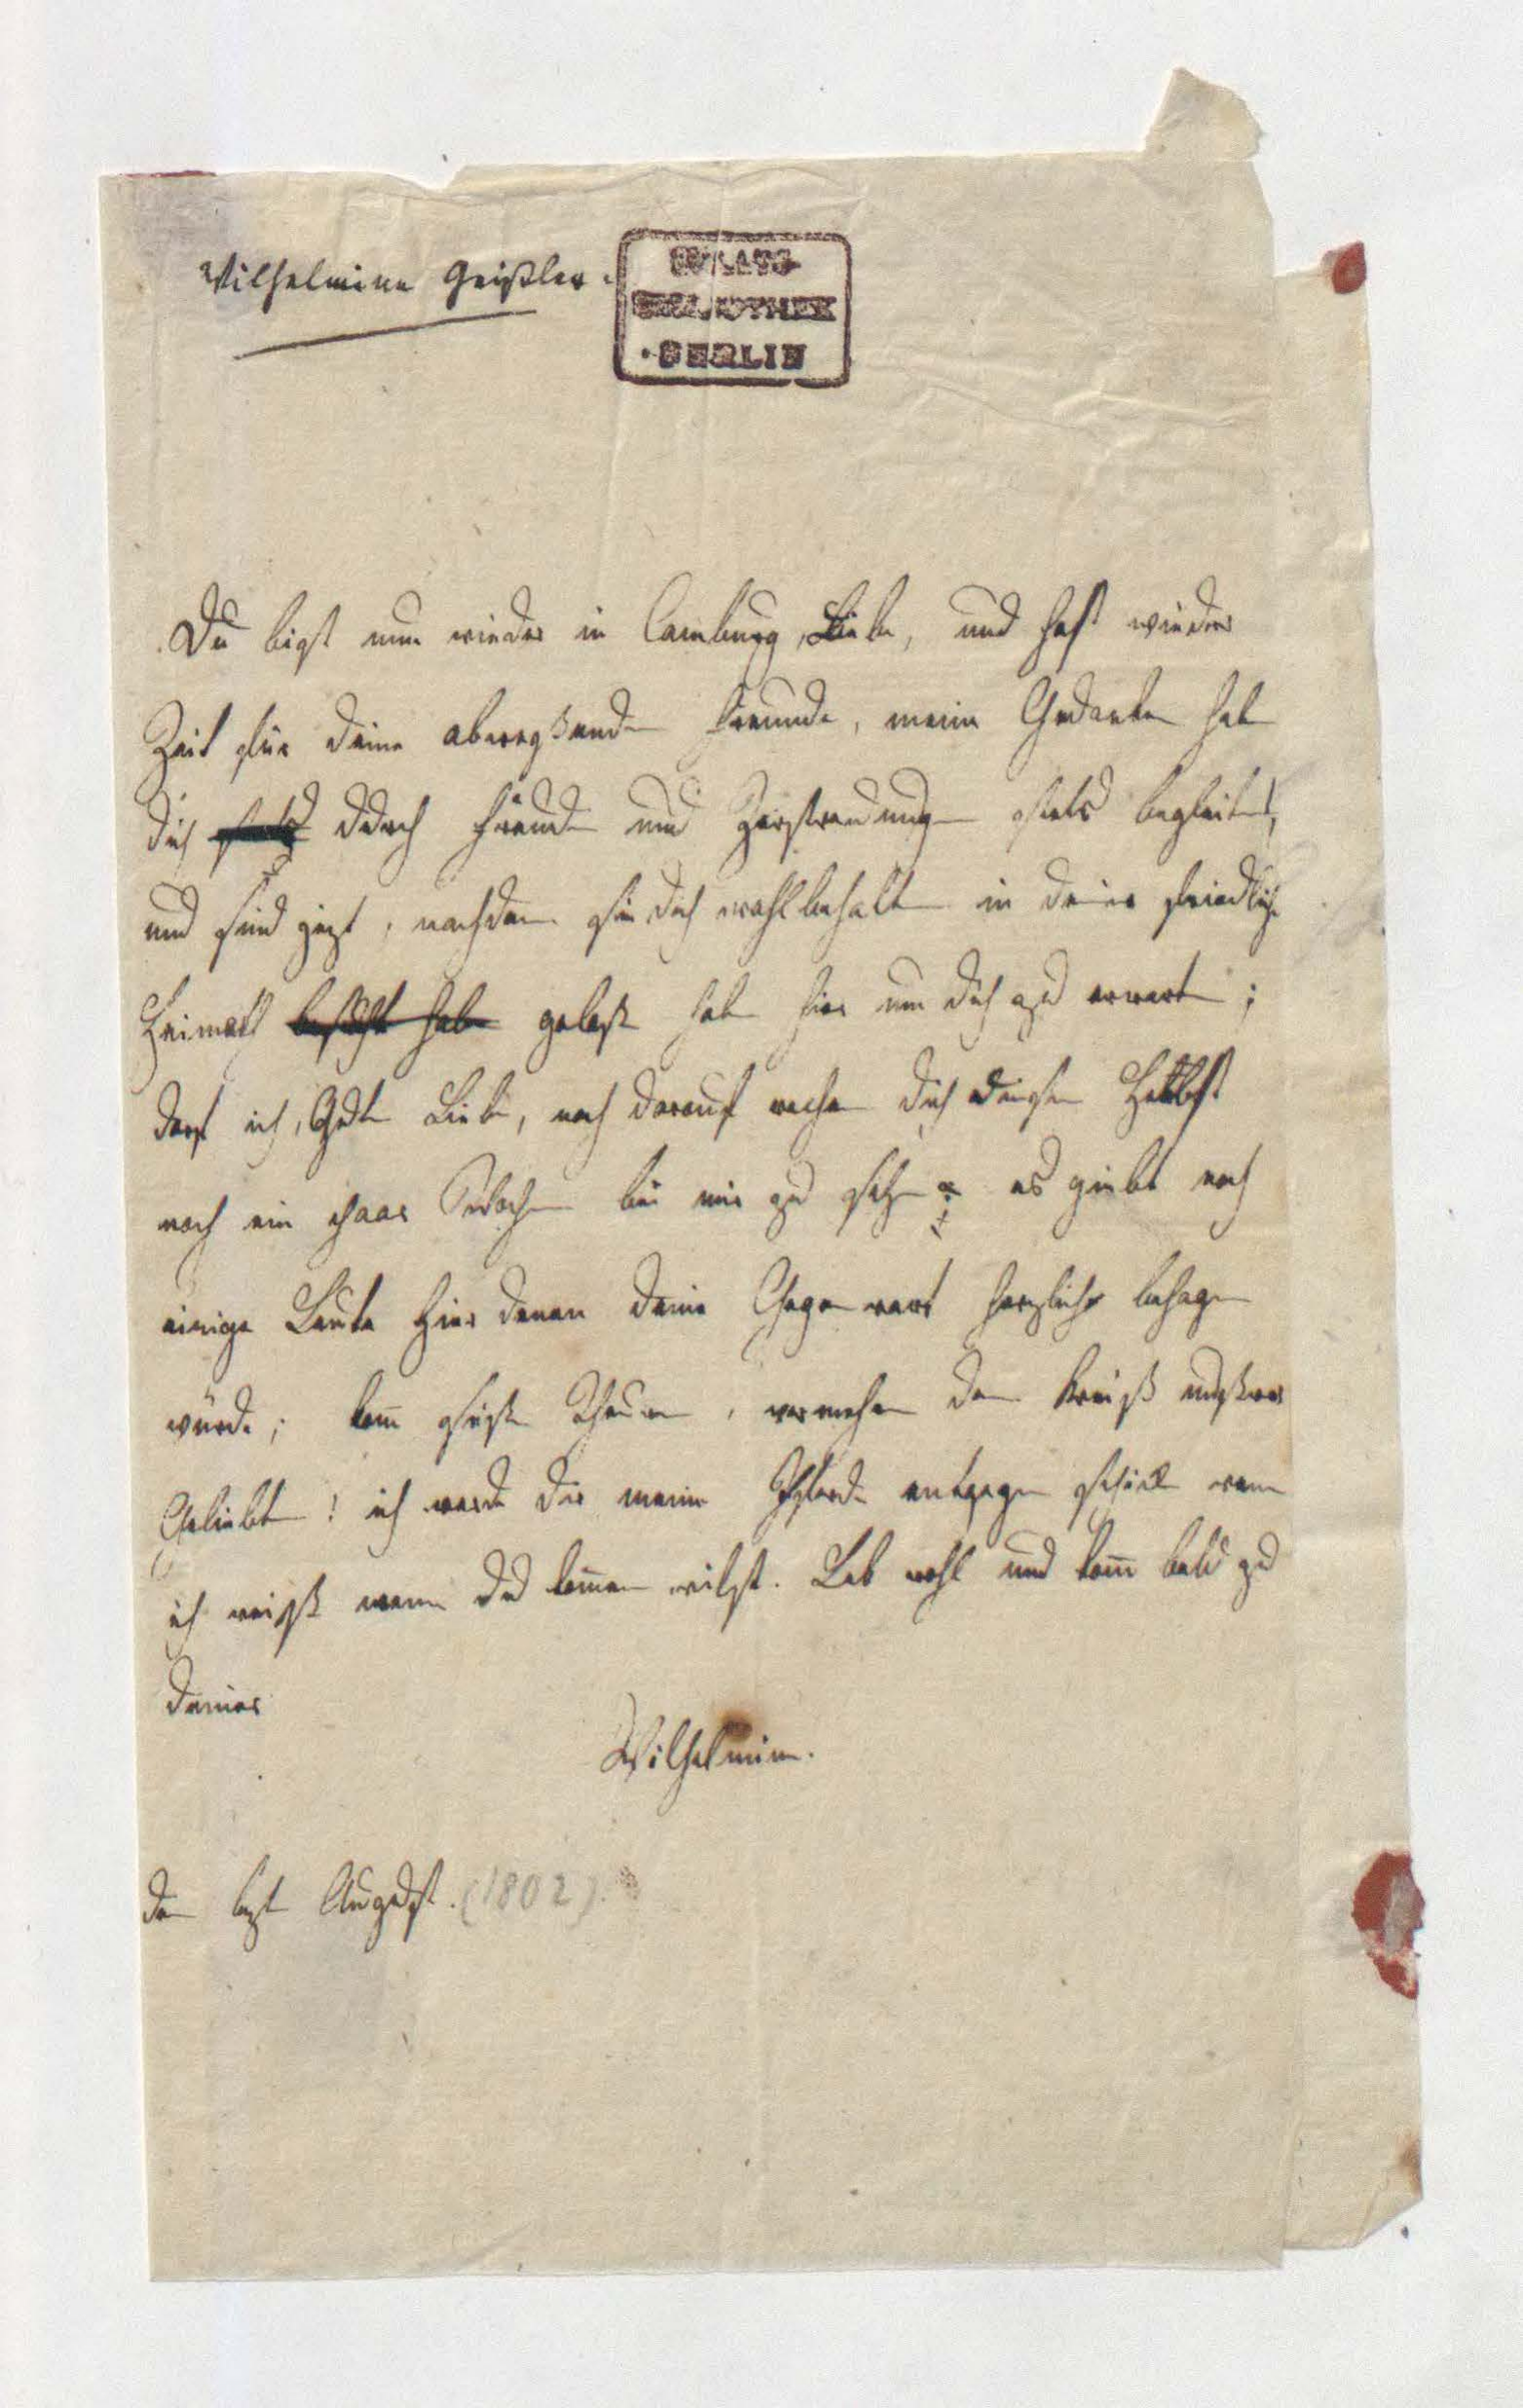 Wilhelmine Geißler.
STAATS-
BIBLIOTHEK
• BERLIN
Du bist nun wieder in Camburg, Liebe, und hast wieder
Zeit für deine abwesenden Freunde, meine Gedanken haben
dich stets durch Freuden und Zerstreuungen stets begleitet,
und sind jezt, nachdem sie dich wohlbehalten in deiner friedlichen
Heimath besucht haben gelaßen haben hier um dich zu erwarten;
darf ich, Gute Liebe, noch darauf rechnen dich diesen Herbst
noch ein paar Wochen bei mir zu sehen? es giebt noch
einige Leute hier denen deine Gegenwart herzlich behagen
würde; kom̄ süße Theure, vermehre den Kreiß unßerer
Geliebten! ich werde dir meine Pferde entgegen schicken wenn
ich weiß wenn du kom̄en wilst. Leb wohl und kom̄ bald zu
deiner
Wilhelmine.
den lezt August. (1802).